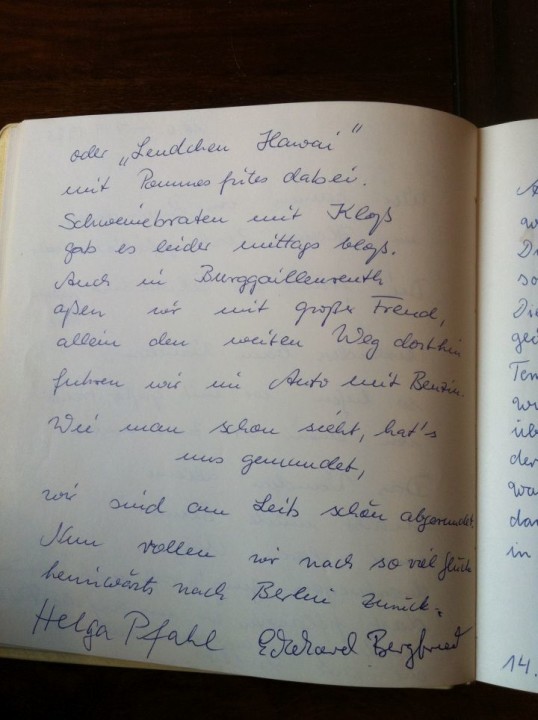 oder „Lendchen Hawai"
mit Pommes frites dabei.
Schweinebraten mit Kloß
gab es leider mittags bloß.
Auch in Burggaillenreuth
aßen wir mit großer Freud,
allein den weiten Weg dorthin
fuhren wir im Auto mit Benzin.
Wie man schon sieht, hat's
uns gemundet,
wir sind am Leib schön abgerundet.
Nun rollen wir nach so viel Glück
heimwärts nach Berlin zurück.
Helga Pfahl Eckhard Bergfried
Di
so
Die
Ter
üb
der
wa
da
in
14.